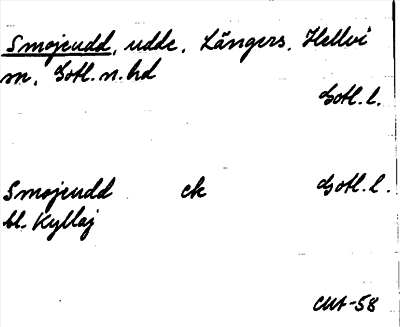 Smojeudd, udde, Längers, Hellvi
m, Gotl. n. hd
Gotl. l.
Smojeudd ck Gotl. l.
bl. Kyllaj